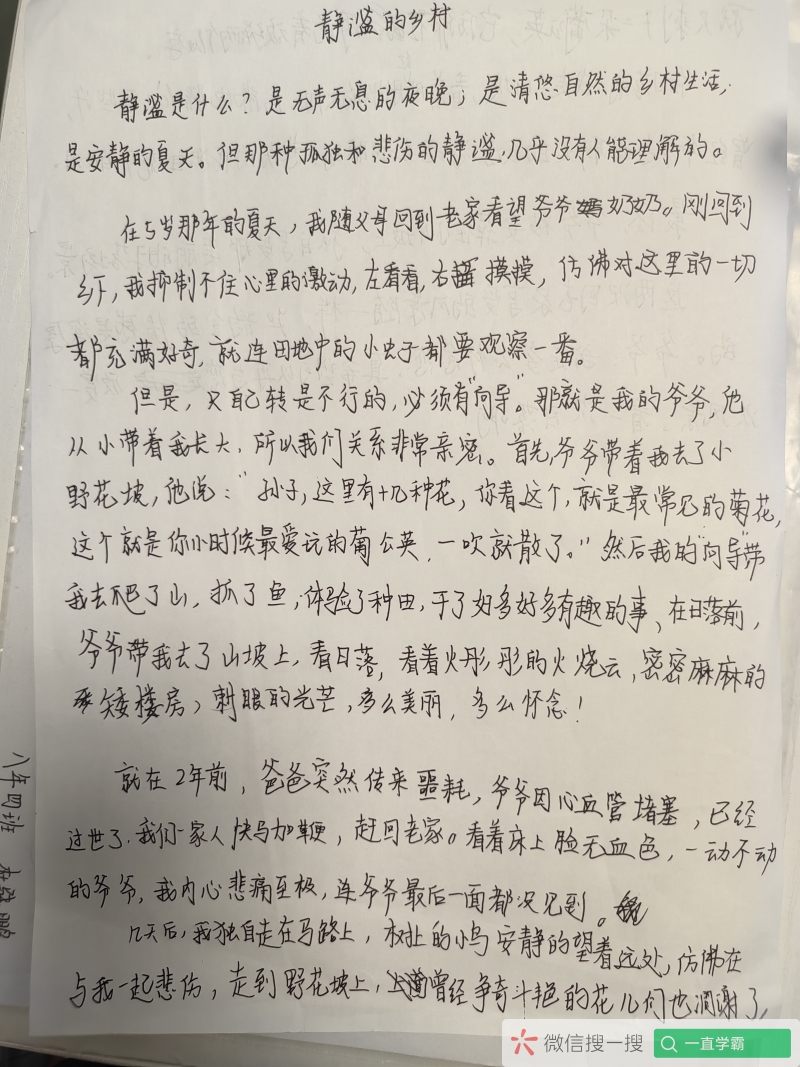 静谧的乡村
静谧是什么？是无声无息的夜晚；是清悠自然的乡村生活，
是安静的夏天。但那种孤独和悲伤的静谧，几乎没有人能理解的。
在5岁那年的夏天，我随父母回到老家看望爷爷奶奶。刚回到
乡下，我抑制不住心里的激动，左看看，右摸摸，仿佛对这里的一切
都充满好奇，就连田地中的小虫子都要观察一番。
但是，只自己转是不行的，必须有"向导"。那就是我的爷爷，他
从小带着我长大，所以我们关系非常亲密。首先，爷爷带着我去了小
野花坡，他说："孙子，这里有十几种花，你看这个，就是最常见的菊花，
这个就是你小时候最爱玩的葡公英，一吹就散了。"然后我的"向导"带
我去爬了山，抓了鱼，体验了种田，干了好多好多有趣的事、在日落前，
爷爷带我去了山坡上，看日落，看着火彤彤的火烧云，密密麻麻的
矮楼房，刺眼的光芒，多么美丽，多么怀念！
就在2年前，爸爸突然传来噩耗，爷爷因心血管堵塞，已经
过世了.我们一家人快马加鞭，赶回老家。看着床上脸无血色，一动不动
的爷爷，我内心悲痛至极，连爷爷最后一面都没见到。
几天后，我独自走在马路上，树上的小鸟安静的望着远处，仿佛在
与我一起悲伤，走到野花坡上，曾经争奇斗艳的花儿们也凋谢了，
八年四班
微信搜一搜 一直学霸